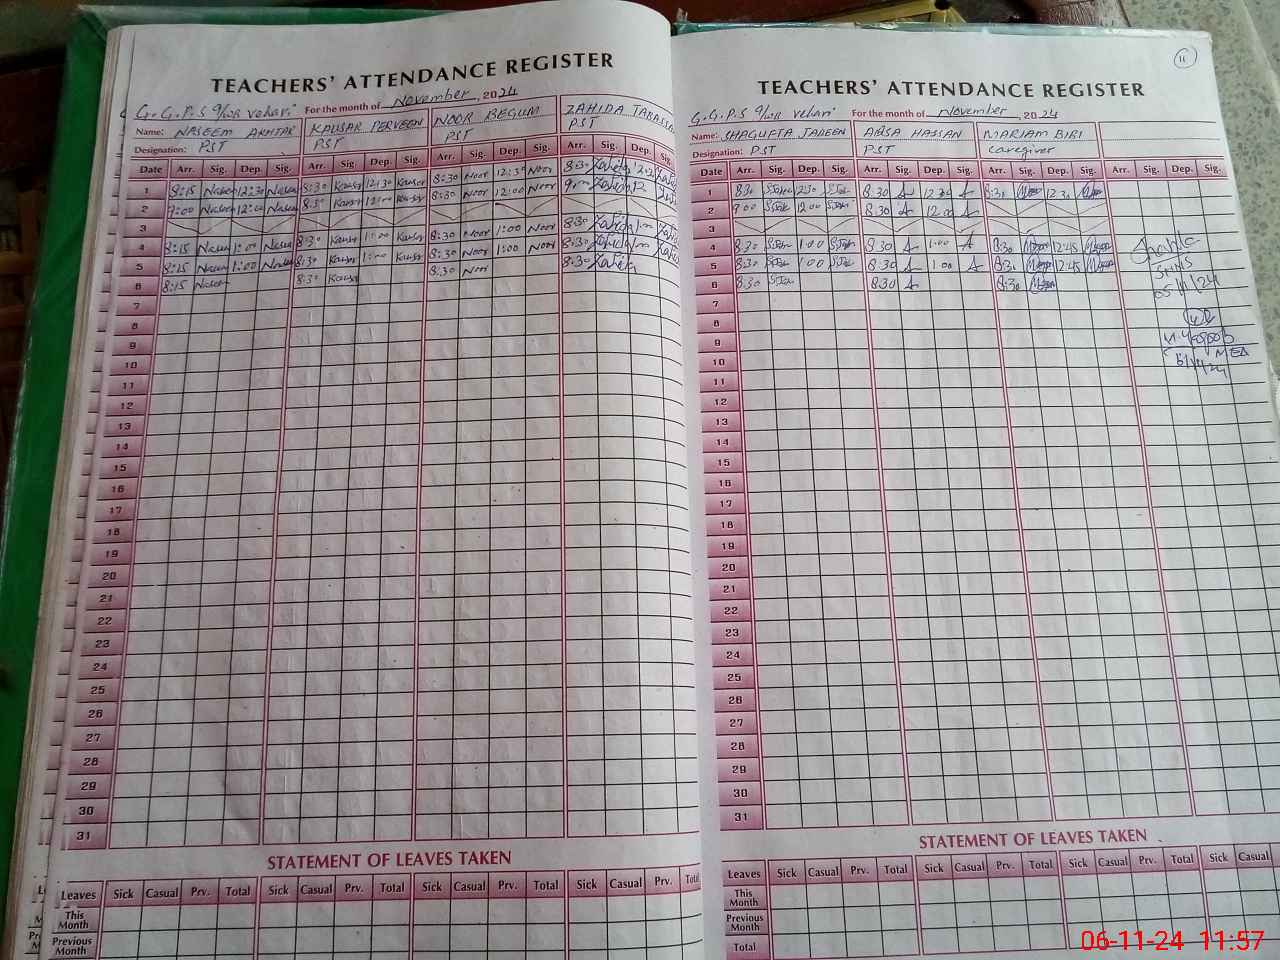 TEACHERS' ATTENDANCE REGISTER
G.G.P.S 9/WB Vehari For the month of November, 2024
Name: NASEEM AKHTAR KAUSAR PERVEEN NOOR BEGUM ZAHIDA TABASSUM
Designation: PST PST PST PST
Date Arr. Sig. Dep. Sig. Arr. Sig. Dep. Sig. Arr. Sig. Dep. Sig. Arr. Sig. Dep. Sig.
1 8:15 Naseem 12:30 Naseem 8:30 Kausar 12:30 Kausar 8:30 Noor 12:30 Noor 8:30 Zahida
2 9:00 Naseem 12:00 Naseem 8:30 Kausar 12:00 Kausar 8:30 Noor 12:00 Noor Zahida 12
3
4 8:15 Naseem 1:00 Naseem 8:30 Kausar 1:00 Kausar 8:30 Noor 1:00 Noor 8:30 Zahida
5 8:15 Naseem 1:00 Naseem 8:30 Kausar 1:00 Kausar 8:30 Noor 1:00 Noor 8:30 Zahida
6 8:15 Naseem 8:30 Kausar 8:30 Noor 8:30 Zahida
7
8
9
10
11
12
13
14
15
16
17
18
19
20
21
22
23
24
25
26
27
28
29
30
31
STATEMENT OF LEAVES TAKEN
Leaves Sick Casual Prv. Total Sick Casual Prv. Total Sick Casual Prv. Total Sick Casual Prv. Total
This Month
Previous Month
11
TEACHERS' ATTENDANCE REGISTER
G.G.P.S 9/WB Vehari For the month of November 2024
Name: SHAGUFTA JABEEN AQSA HASSAN MARIAM BIBI
Designation: PST PST Caregiver
Date Arr. Sig. Dep. Sig. Arr. Sig. Dep. Sig. Arr. Sig. Dep. Sig. Arr. Sig. Dep. Sig.
1 8:30 12:30 8:30 A 12:30 A 8:30 12:30
2 9:00 12:00 8:30 A 12:00 A
3
4 8:30 1:00 8:30 A 1:00 A 8:30 12:45
5 8:30 1:00 8:30 A 1:00 A 8:30 12:45
6 8:30 8:30 A 8:30
SHNS
05/11/24
MEA
7
8
9
10
11
12
13
14
15
16
17
18
19
20
21
22
23
24
25
26
27
28
29
30
31
STATEMENT OF LEAVES TAKEN
Leaves Sick Casual Prv. Total Sick Casual Prv. Total Sick Casual Prv. Total Sick Casual
This Month
Previous Month
Total
06-11-24 11:57